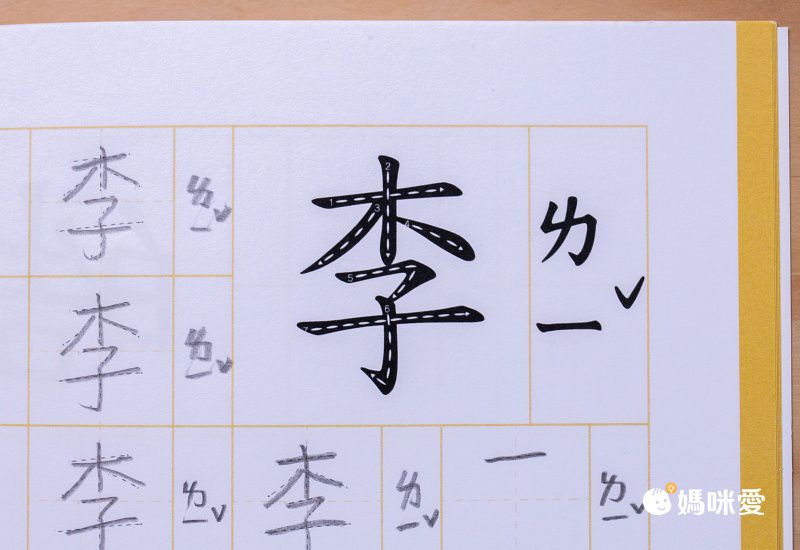 李 ㄌㄧˇ
1 2 3 4 5 6
一 ㄌㄧˇ
李 ㄌㄧˇ
李 ㄌㄧˇ
李 ㄌㄧˇ
李 ㄌㄧˇ
媽咪愛